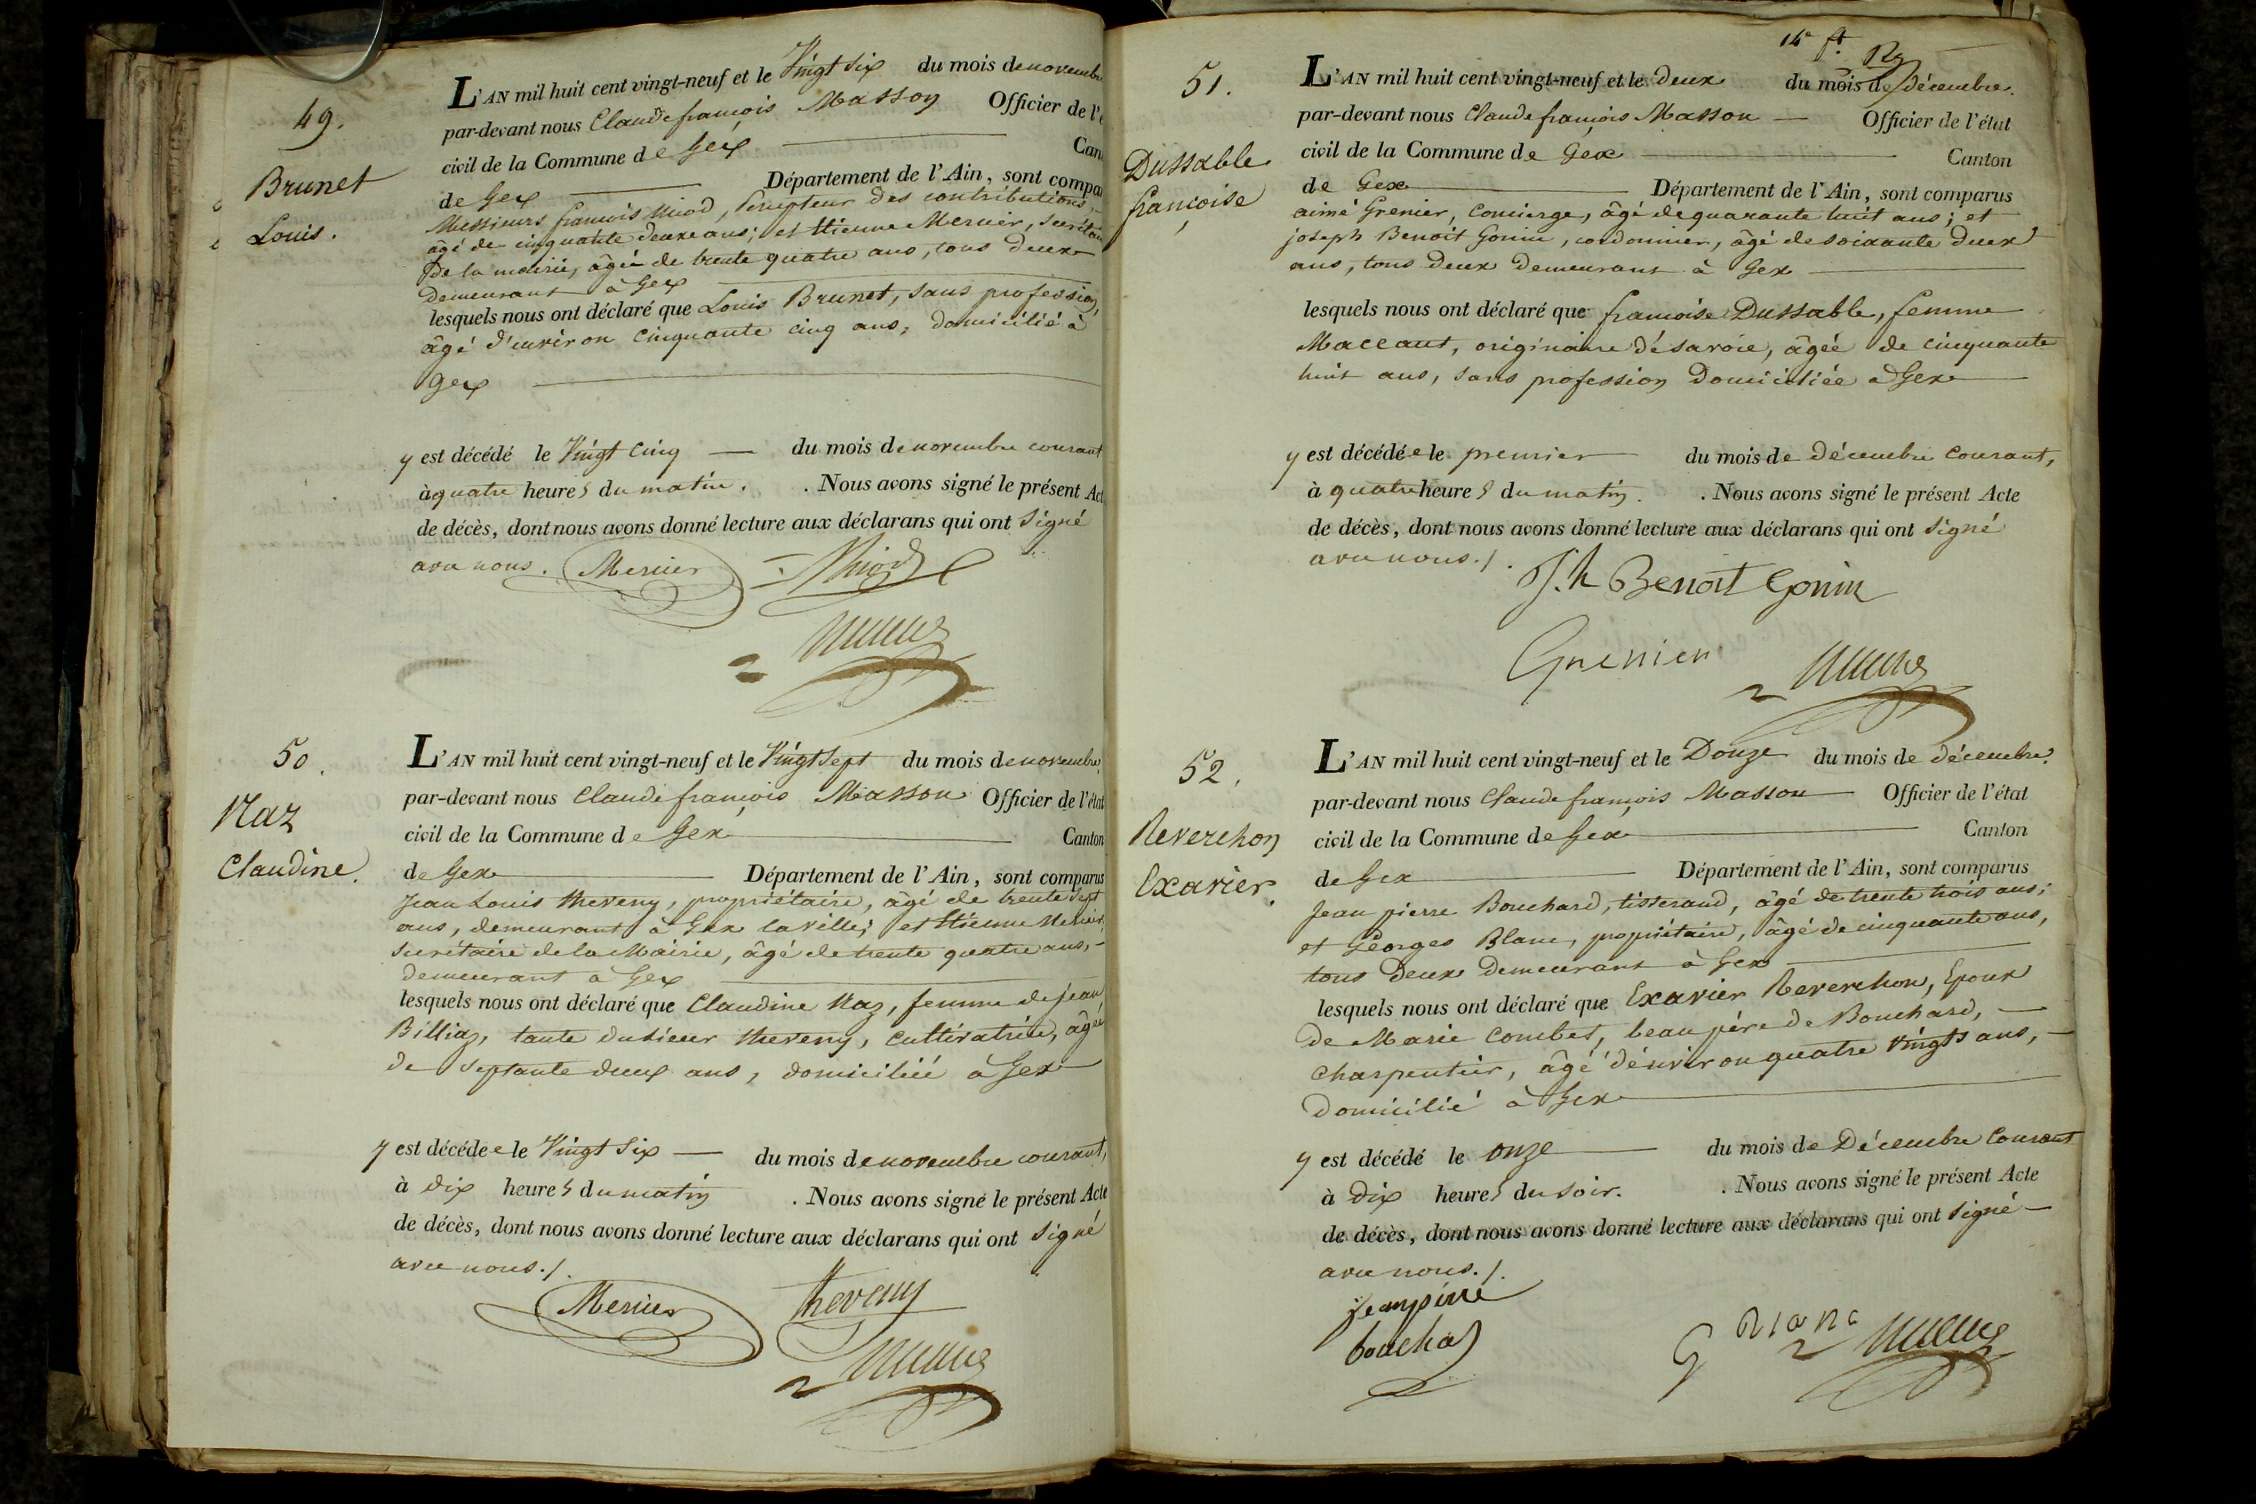 49.
Brunet
Louis.
L'AN mil huit cent vingt-neuf et le Vingt six du mois de novembre
par-devant nous Claude françois Masson Officier de l'é
civil de la Commune de Gex Can
de Gex Département de l'Ain, sont compar
Messieurs françois Miod, percepteur des contributions,
âgé de cinquante deux ans; et Etienne Mercier, secrétaire
de la mairie, âgé de trente quatre ans, tous deux
demeurant à Gex
lesquels nous ont déclaré que Louis Brunet, sans profession,
âgé d'environ cinquante cinq ans, domicilié à
Gex
y est décédé le Vingt cinq du mois de novembre courant
à quatre heures du matin. . Nous avons signé le présent Act
de décès, dont nous avons donné lecture aux déclarans qui ont signé
avec nous. Mercier Miod
50.
Naz
Claudine.
L'AN mil huit cent vingt-neuf et le Vingt sept du mois de novembre,
par-devant nous Claude françois Masson Officier de l'état
civil de la Commune de Gex Canton
de Gex Département de l'Ain, sont comparus
Jean Louis theveny, propriétaire, âgé de trente sept
ans, demeurant à Gex la ville; et Etienne Mercier,
secrétaire de la Mairie, âgé de trente quatre ans,
demeurant à Gex
lesquels nous ont déclaré que Claudine Naz, femme de Jean
Billiaz, tante du sieur theveny, cultivatrice, âgée
de septante deux ans, domiciliée à Gex
y est décédée le Vingt six du mois de novembre courant,
à dix heures du matin . Nous avons signé le présent Acte
de décès, dont nous avons donné lecture aux déclarans qui ont signé
avec nous./.
Mercier theveny
14e ft.
51.
Dussable
françoise
L'AN mil huit cent vingt-neuf et le deux du mois de décembre.
par-devant nous Claude françois Masson Officier de l'état
civil de la Commune de Gex Canton
de Gex Département de l'Ain, sont comparus
aimé Grenier, concierge, âgé de quarante huit ans; et
joseph Benoit Gonin, cordonnier, âgé de soixante deux
ans, tous deux demeurant à Gex
lesquels nous ont déclaré que françoise Dussable, femme
Maccaut, originaire de savoie, âgée de cinquante
huit ans, sans profession domiciliée à Gex
y est décédée le premier du mois de décembre courant,
à quatre heures du matin. . Nous avons signé le présent Acte
de décès, dont nous avons donné lecture aux déclarans qui ont signé
avec nous./.
J.h Benoit Gonin
Grenier
52.
Reverchon
Exavier.
L'AN mil huit cent vingt-neuf et le Douze du mois de décembre.
par-devant nous Claude françois Masson Officier de l'état
civil de la Commune de Gex Canton
de Gex Département de l'Ain, sont comparus
Jean pierre Bouchard, tisserand, âgé de trente trois ans;
et Georges Blanc, propriétaire, âgé de cinquante ans,
tous deux demeurant à Gex
lesquels nous ont déclaré que Exavier Reverchon, Epoux
de Marie Combet, beau père de Bouchard,
charpentier, âgé d'environ quatre vingts ans,
domicilié à Gex
y est décédé le onze du mois de Décembre courant
à dix heures du soir. . Nous avons signé le présent Acte
de décès, dont nous avons donné lecture aux déclarans qui ont signé
avec nous./.
jeanpirre
bouchar